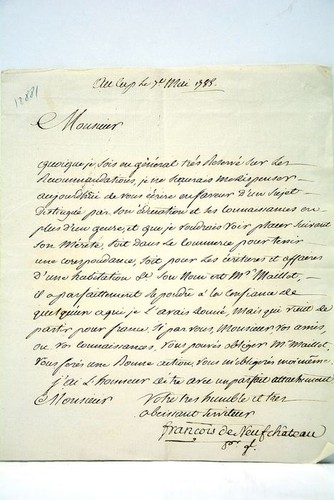 12881
Au Cap le 7e Mai 1788.
Monsieur
quoique je sois en général très Réservé sur les
Recommandations, je ne saurais me dispenser
aujourd'hui de vous écrire en faveur d'un Sujet
distingué par son éducation et ses connaissances en
plus d'un genre, et que je voudrais Voir placer suivant
son Mérite, soit dans le Commerce pour tenir
une corespondance, soit pour les écritures et affaires
d'une habitation &a. Son Nom est Mr. Maillot,
il a parfaittement Repondu à la Confiance de
quelqu'un a qui je l'avais donné, Mais qui vient de
partir pour france. Si par vous, Monsieur, vos amis,
ou vos connaissances, Vous pouvés obliger Mr Maillot,
Vous ferés une Bonne action, Vous m'obligerés moi même
j'ai l'honneur d'être avec un parfait attachement
Monsieur Votre très humble et très
obeissant Serviteur
françois de Neufchâteau